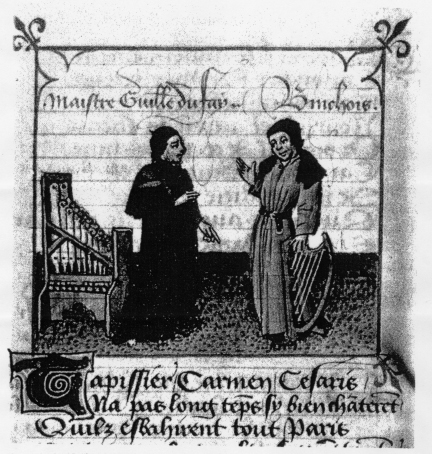 Maistre Guille du fay Binchois.
Tapissier Carmen Cesaris
Na pas long teps sy bien chãteret
Quilz esbahirent tout Paris